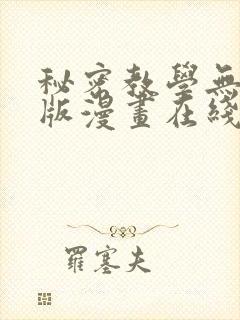 秘密教學無
版漫畫在綫
羅塞夫